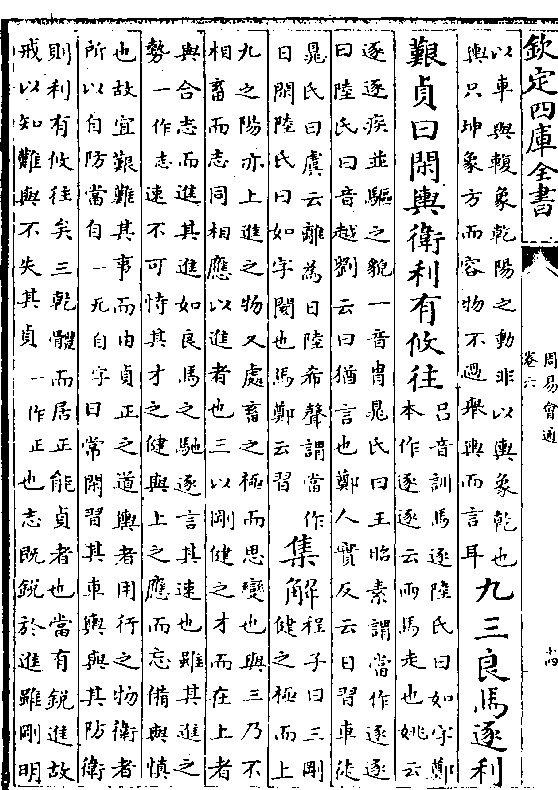 欽定四庫全書
周易會通
卷六
十四
以車與輹象乾陽之動非以輿象乾也
輿只坤象方而容物不過舉輿而言耳
九三良馬逐利
艱貞曰閑輿衛利有攸往
呂音訓馬逐陸氏曰如字鄭
本作逐逐云兩馬走也姚云
逐逐疾並驅之貌一音冑晁氏曰王昭素謂當作逐逐
曰陸氏曰音越劉云曰猶言也鄭人實反云日習車徒
晁氏曰虞云離為日陸希聲謂當作
日閑陸氏曰如字閡也馬鄭云習
集解
程子曰三剛
健之極而上
九之陽亦上進之物又處畜之極而思變也與三乃不
相畜而志同相應以進者也三以剛健之才而在上者
與合志而進其進如良馬之馳逐言其速也雖其進之
勢一作志速不可恃其才之健與上之應而忘備與慎
也故宜艱難其事而由貞正之道輿者用行之物衛者
所以自防當自一无自字日常閑習其車輿與其防衛
則利有攸往矣三乾體而居正能貞者也當有銳進故
戒以知難與不失其貞一作正也志既銳於進雖剛明